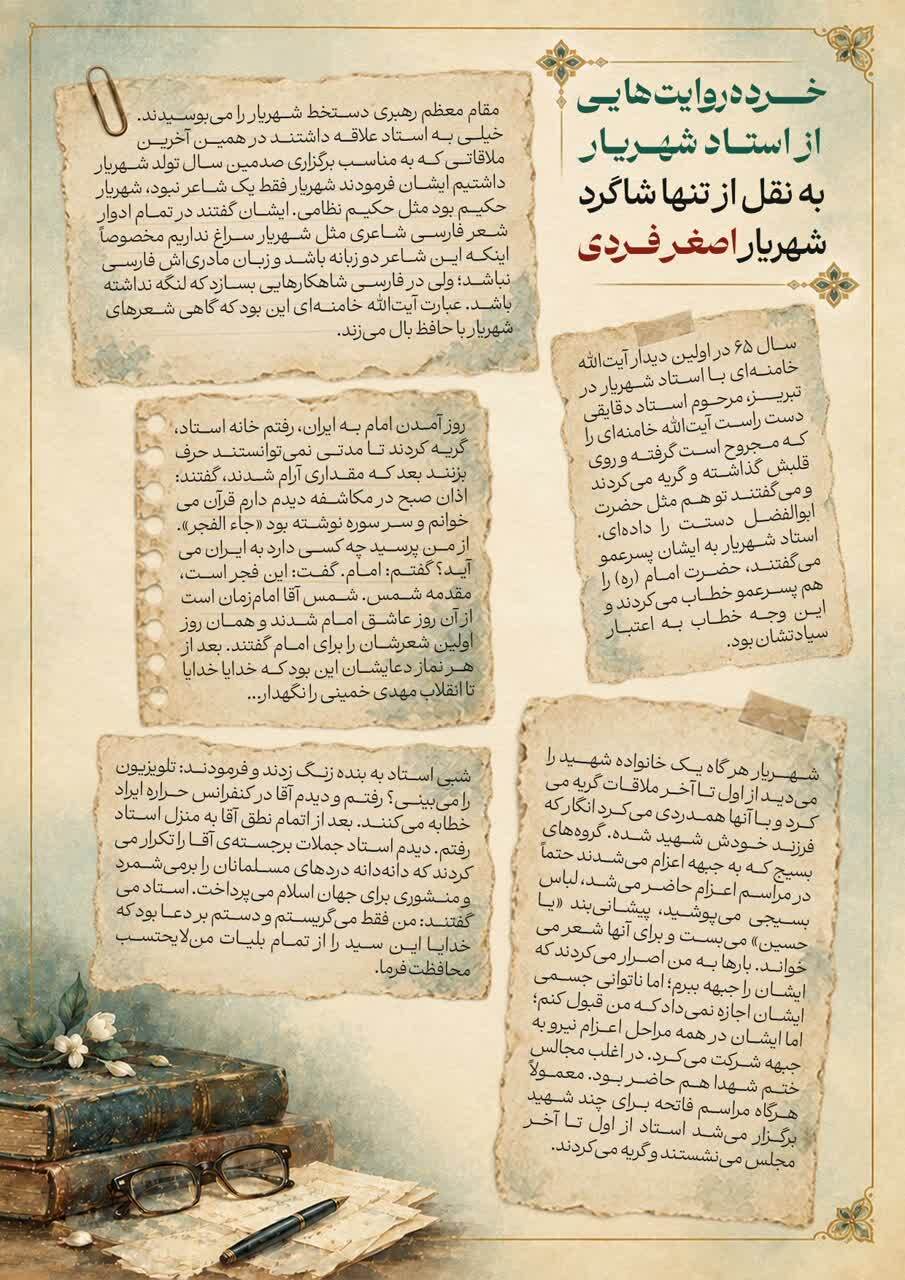 خرده‌روایت‌هایی
از استاد شهریار
به نقل از تنها شاگرد
شهریار اصغر فردی
مقام معظم رهبری دستخط شهریار را می‌بوسیدند.
خیلی به استاد علاقه داشتند در همین آخرین
ملاقاتی که به مناسب برگزاری صدمین سال تولد شهریار
داشتیم ایشان فرمودند شهریار فقط یک شاعر نبود، شهریار
حکیم بود مثل حکیم نظامی. ایشان گفتند در تمام ادوار
شعر فارسی شاعری مثل شهریار سراغ نداریم مخصوصاً
اینکه این شاعر دو زبانه باشد و زبان مادری‌اش فارسی
نباشد؛ ولی در فارسی شاهکارهایی بسازد که لنگه نداشته
باشد. عبارت آیت‌الله خامنه‌ای این بود که گاهی شعرهای
شهریار با حافظ بال می‌زند.
سال ۶۵ در اولین دیدار آیت‌الله
خامنه‌ای با استاد شهریار در
تبریز، مرحوم استاد دقایقی
دست راست آیت‌الله خامنه‌ای را
که مجروح است گرفته و روی
قلبش گذاشته و گریه می‌کردند
و می‌گفتند تو هم مثل حضرت
ابوالفضل دستت را داده‌ای.
استاد شهریار به ایشان پسرعمو
می‌گفتند، حضرت امام (ره) را
هم پسرعمو خطاب می‌کردند و
این وجه خطاب به اعتبار
سیادتشان بود.
روز آمدن امام به ایران، رفتم خانه استاد،
گریه کردند تا مدتی نمی‌توانستند حرف
بزنند بعد که مقداری آرام شدند، گفتند:
اذان صبح در مکاشفه دیدم دارم قرآن می
خوانم و سر سوره نوشته بود «جاء الفجر».
از من پرسید چه کسی دارد به ایران می
آید؟ گفتم: امام. گفت: این فجر است،
مقدمه شمس. شمس آقا امام‌زمان است
از آن روز عاشق امام شدند و همان روز
اولین شعرشان را برای امام گفتند. بعد از
هر نماز دعایشان این بود که خدایا خدایا
تا انقلاب مهدی خمینی را نگهدار...
شهریار هر گاه یک خانواده شهید را
می‌دید از اول تا آخر ملاقات گریه می
کرد و با آنها همدردی می‌کرد انگار که
فرزند خودش شهید شده. گروه‌های
بسیج که به جبهه اعزام می‌شدند حتماً
در مراسم اعزام حاضر می‌شد، لباس
بسیجی می‌پوشید، پیشانی‌بند «یا
حسین» می‌بست و برای آنها شعر می
خواند. بارها به من اصرار می‌کردند که
ایشان را جبهه ببرم؛ اما ناتوانی جسمی
ایشان اجازه نمی‌داد که من قبول کنم؛
اما ایشان در همه مراحل اعزام نیرو به
جبهه شرکت می‌کرد. در اغلب مجالس
ختم شهدا هم حاضر بود. معمولاً
هرگاه مراسم فاتحه برای چند شهید
برگزار می‌شد استاد از اول تا آخر
مجلس می‌نشستند و گریه می‌کردند.
شبی استاد به بنده زنگ زدند و فرمودند: تلویزیون
را می‌بینی؟ رفتم و دیدم آقا در کنفرانس حراره ایراد
خطابه می‌کنند. بعد از اتمام نطق آقا به منزل استاد
رفتم. دیدم استاد جملات برجسته‌ی آقا را تکرار می
کردند که دانه‌دانه دردهای مسلمانان را برمی‌شمرد
و منشوری برای جهان اسلام می‌پرداخت. استاد می
گفتند: من فقط می‌گریستم و دستم بر دعا بود که
خدایا این سید را از تمام بلیات من‌لایحتسب
محافظت فرما.